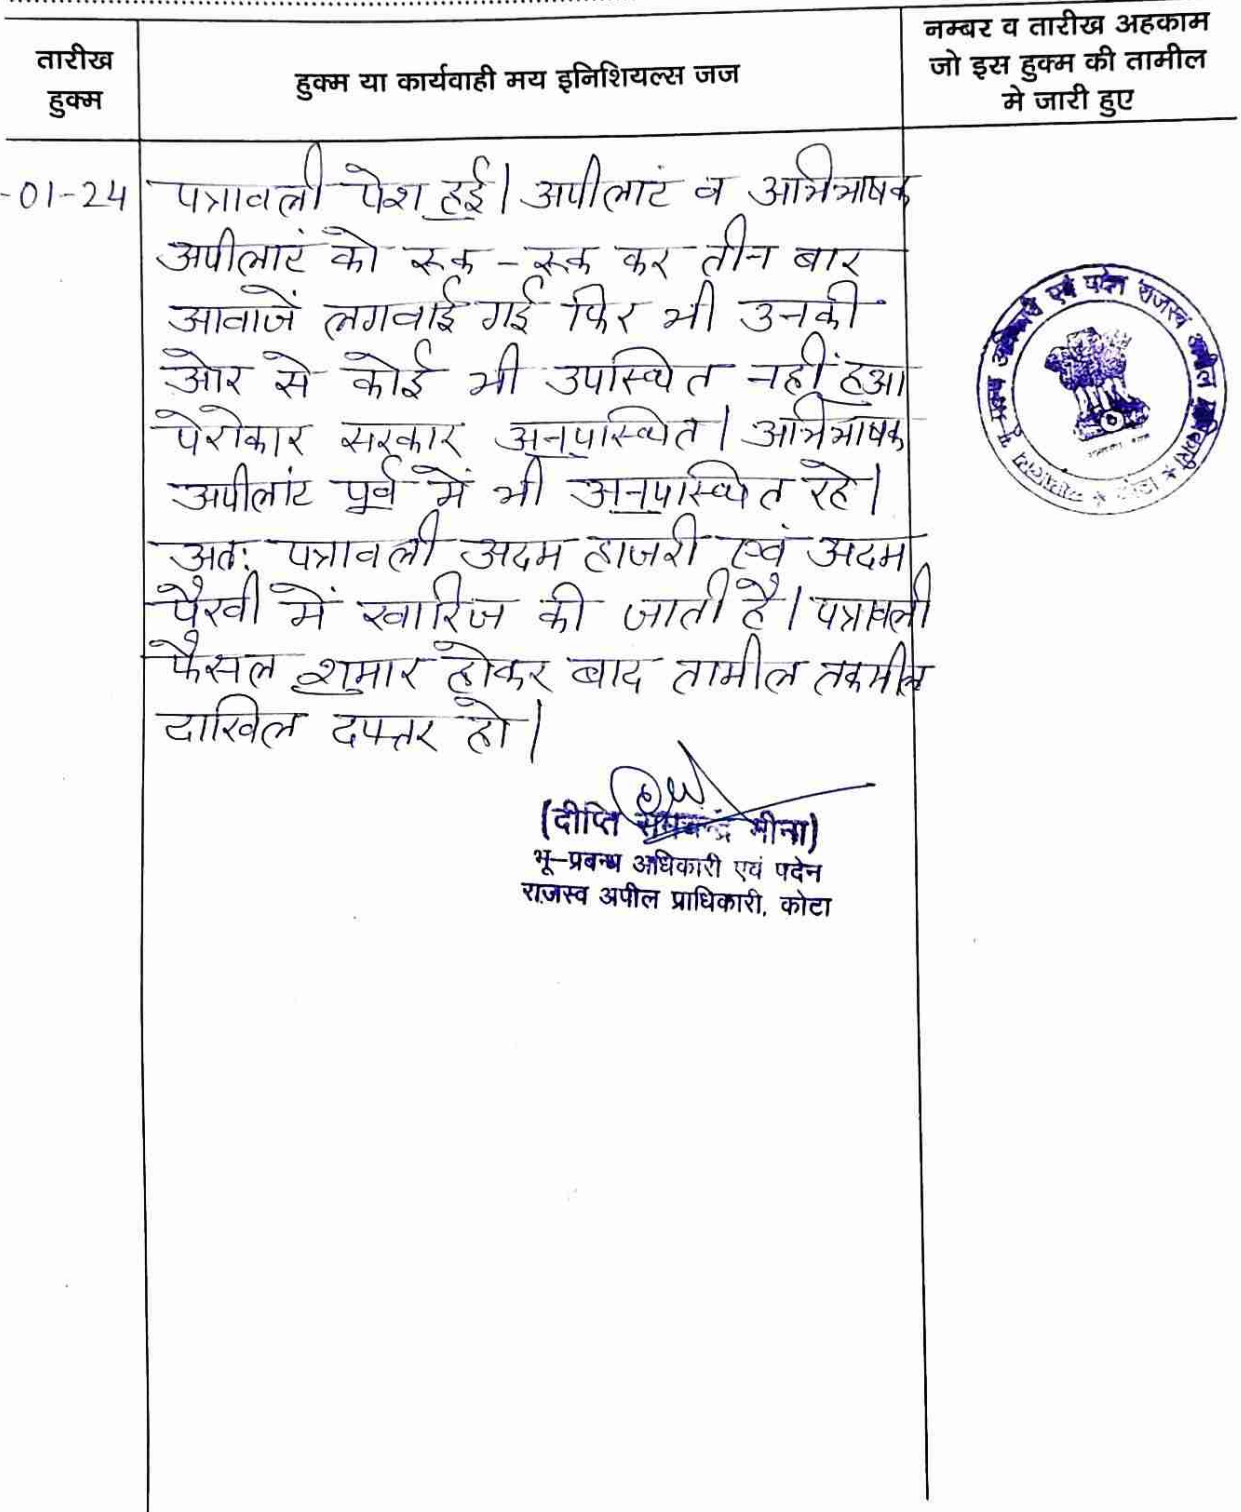 तारीख
हुक्म
हुक्म या कार्यवाही मय इनिशियल्स जज
नम्बर व तारीख अहकाम
जो इस हुक्म की तामील
मे जारी हुए
-01-24
पत्रावली पेश हुई। अपीलांट व अभिभाषक
अपीलांट को रूक-रूक कर तीन बार
आवाजें लगवाई गई फिर भी उनकी
ओर से कोई भी उपस्थित नहीं हुआ
पेरोकार सरकार अनुपस्थित। अभिभाषक
अपीलांट पूर्व में भी अनुपस्थित रहे।
अतः पत्रावली अदम हाजरी एवं अदम
पैरवी में खारिज की जाती है। पत्रावली
फैसल शुमार होकर बाद तामील तकमील
दाखिल दफ्तर हो।
(दीप्ति मीना)
भू-प्रबन्ध अधिकारी एवं पदेन
राजस्व अपील प्राधिकारी, कोटा
एवं पदेन राजस्व अपील